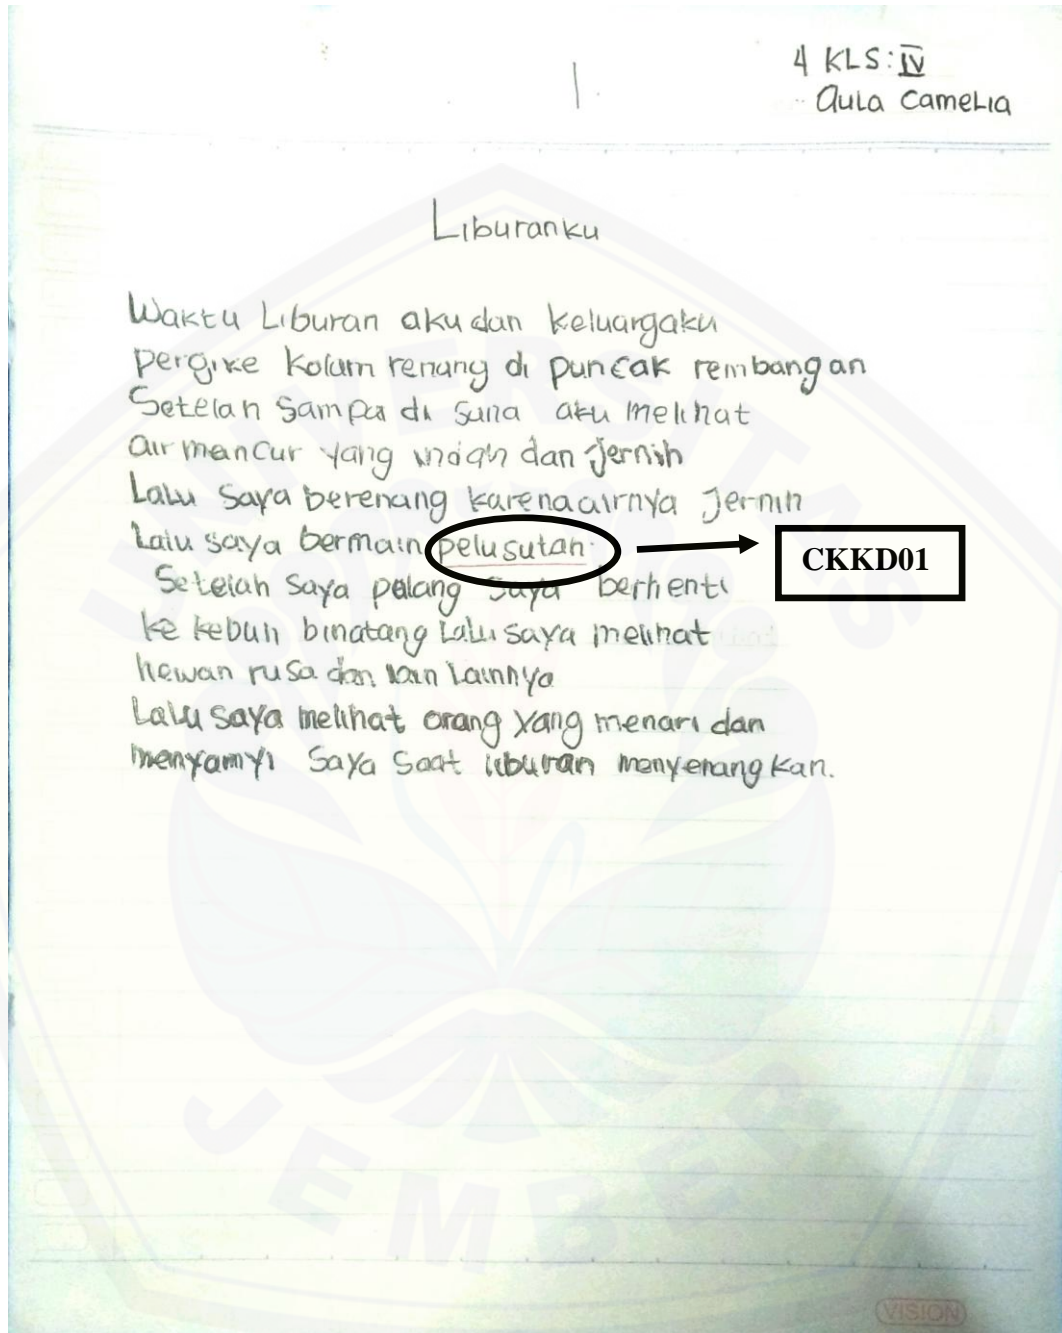 4 KLS: IV
Aula Camelia
Liburanku
Waktu Liburan aku dan keluargaku
pergi ke kolam renang di puncak rembangan
Setelah Sampai di sana aku melihat
air mancur yang indah dan Jernih
Lalu Saya berenang karena airnya Jernih
Lalu saya bermain pelusutan
CKKD01
Setelah Saya pulang Saya berhenti
ke kebun binatang Lalu saya melihat
hewan rusa dan lain Lainnya
Lalu saya melihat orang yang menari dan
menyamyi Saya Saat liburan menyenangkan.
UNIVERSITAS
JEMBER
VISION